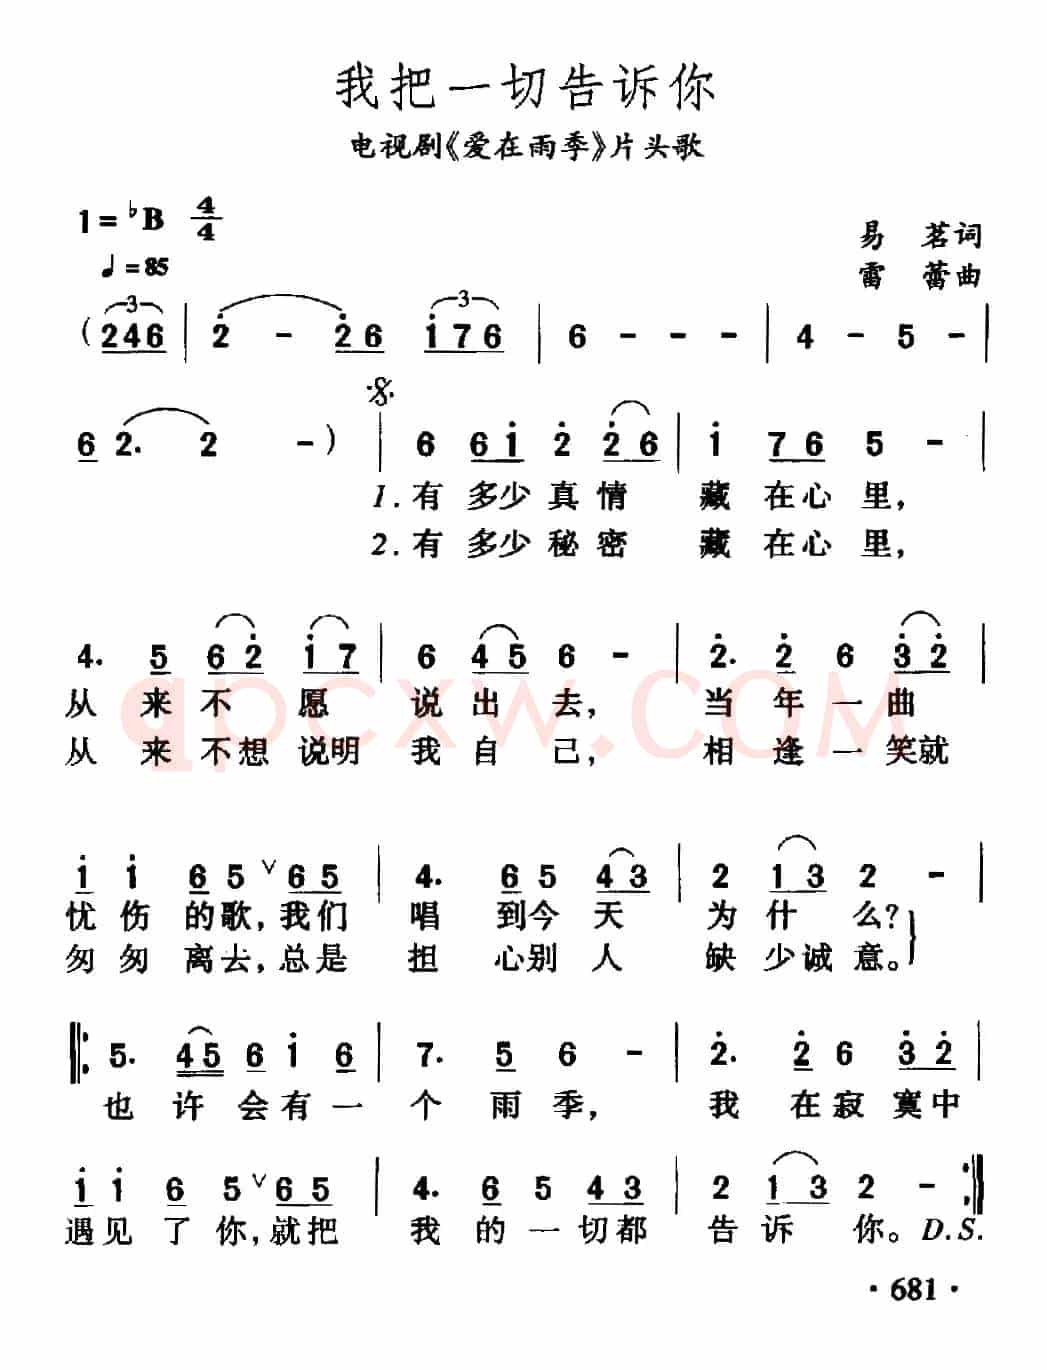 我把一切告诉你
电视剧《爱在雨季》片头歌
1=♭B 4/4
易 茗词
♩=85
雷 蕾曲
(246 | 2 - 26 176 | 6 - - - | 4 - 5 - |
6 2. 2 -) | 6 61 2 26 | 1 76 5 - |
1.有 多少 真 情 藏 在心 里,
2.有 多少 秘 密 藏 在心 里,
4. 5 62 17 | 6 45 6 - | 2. 2 6 32 |
从 来 不 愿 说 出 去, 当 年 一 曲
从 来 不想 说明 我 自 己, 相 逢 一 笑就
qpcxw.COM
1 1 6 5 ∨ 65 | 4. 6 5 43 | 2 13 2 - |
忧 伤 的歌,我们 唱 到今 天 为 什 么?
匆 匆 离去,总是 担 心别 人 缺 少诚 意。
5. 45 6 1 6 | 7. 5 6 - | 2. 2 6 32 |
也 许 会 有 一 个 雨 季, 我 在 寂 寞中
1 1 6 5 ∨ 65 | 4. 6 5 43 | 2 13 2 - :|
遇 见 了 你,就把 我 的 一 切都 告 诉 你。D.S.
·681·